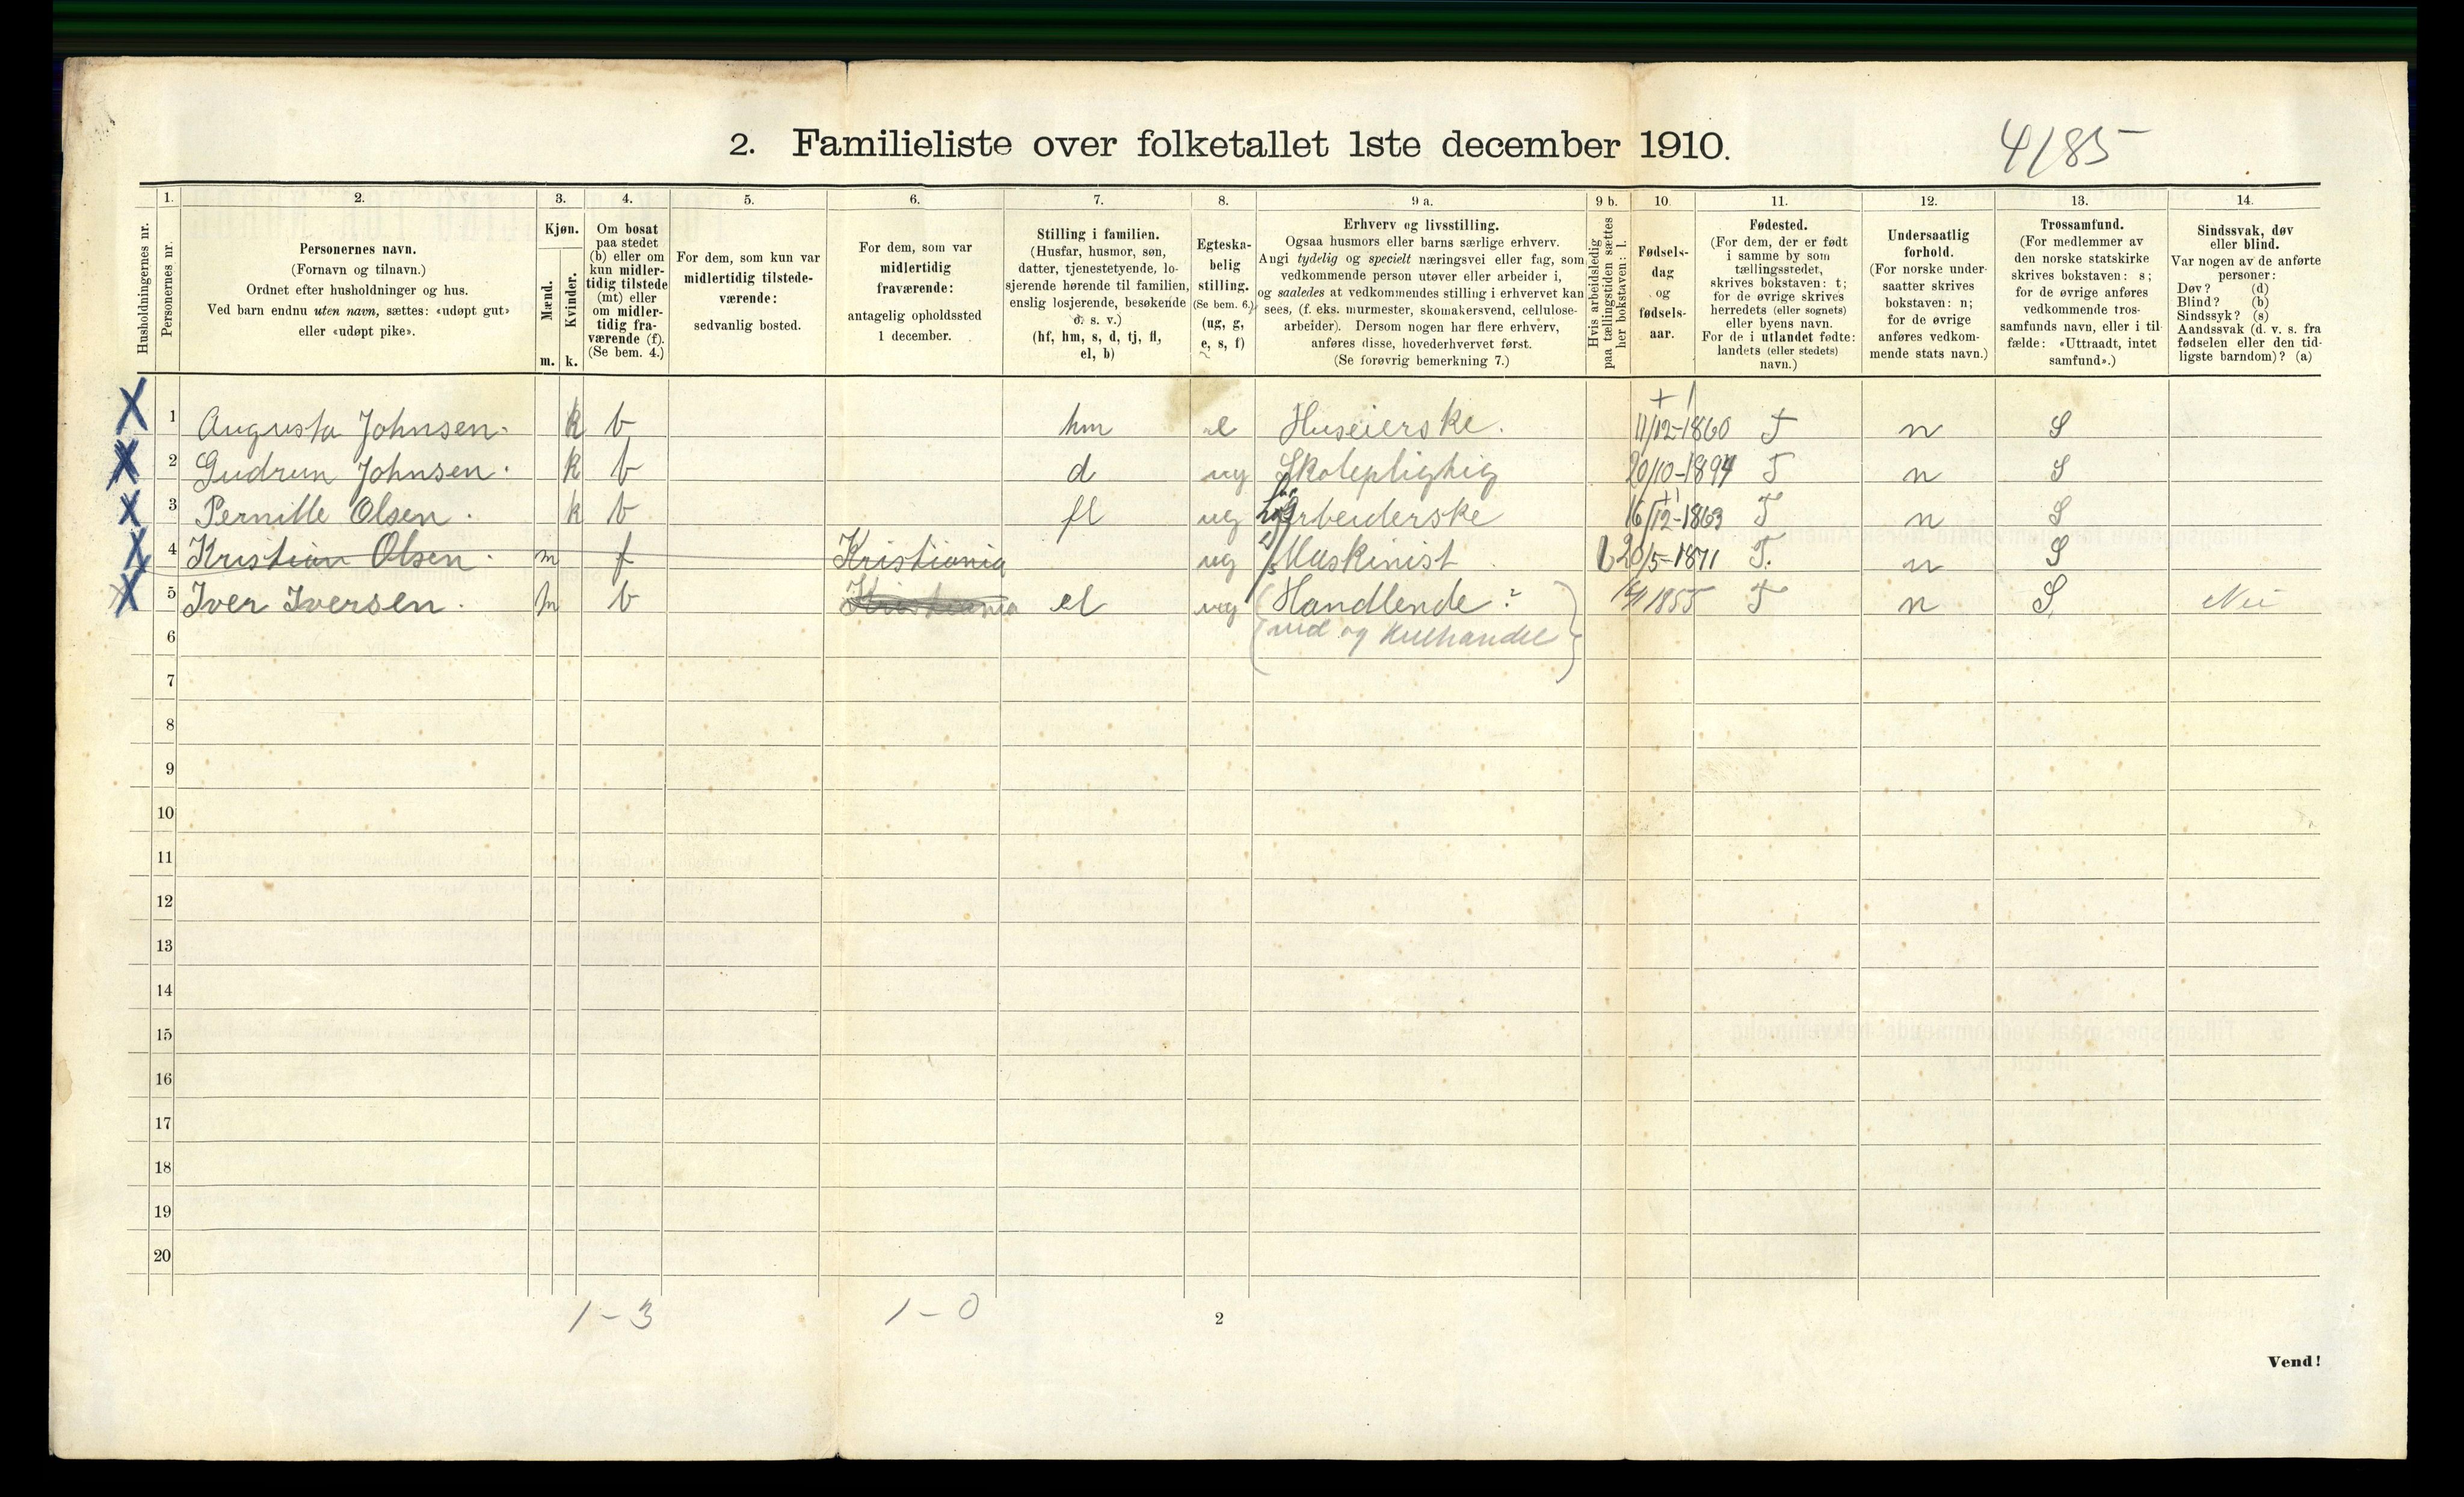 2. Familieliste over folketallet 1ste december 1910.
4/85
Husholdningernes nr.
1.
Personernes nr.
2.
Personernes navn.
(Fornavn og tilnavn.)
Ordnet efter husholdninger og hus.
Ved barn endnu uten navn, sættes: «udøpt gut»
eller «udøpt pike».
3.
Kjøn.
Mænd.
Kvinder.
m.
k.
4.
Om bosat
paa stedet
(b) eller om
kun midler-
tidig tilstede
(mt) eller
om midler-
tidig fra-
værende (f).
(Se bem. 4.)
5.
For dem, som kun var
midlertidig tilstede-
værende:
sedvanlig bosted.
6.
For dem, som var
midlertidig
fraværende:
antagelig opholdssted
1 december.
7.
Stilling i familien.
(Husfar, husmor, søn,
datter, tjenestetyende, lo-
sjerende hørende til familien,
enslig losjerende, besøkende
o. s. v.)
(hf, hm, s, d, tj, fl,
el, b)
8.
Egteska-
belig
stilling.
(Se bem. 6.)
(ug, g,
e, s, f)
9 a.
Erhverv og livsstilling.
Ogsaa husmors eller barns særlige erhverv.
Angi tydelig og specielt næringsvei eller fag, som
vedkommende person utøver eller arbeider i,
og saaledes at vedkommendes stilling i erhvervet kan
sees, (f. eks. murmester, skomakersvend, cellulose-
arbeider). Dersom nogen har flere erhverv,
anføres disse, hovederhvervet først.
(Se forøvrig bemerkning 7.)
9 b.
Hvis arbeidsledig
paa tællingstiden sættes
her bokstaven: l.
10.
Fødsels-
dag
og
fødsels-
aar.
11.
Fødested.
(For dem, der er født
i samme by som
tællingsstedet,
skrives bokstaven: t;
for de øvrige skrives
herredets (eller sognets)
eller byens navn.
For de i utlandet fødte:
landets (eller stedets)
navn.)
12.
Undersaatlig
forhold.
(For norske under-
saatter skrives
bokstaven: n;
for de øvrige
anføres vedkom-
mende stats navn.)
13.
Trossamfund.
(For medlemmer av
den norske statskirke
skrives bokstaven: s;
for de øvrige anføres
vedkommende tros-
samfunds navn, eller i til-
fælde: «Uttraadt, intet
samfund».)
14.
Sindssvak, døv
eller blind.
Var nogen av de anførte
personer:
Døv? (d)
Blind? (b)
Sindssyk? (s)
Aandssvak (d. v. s. fra
fødselen eller den tid-
ligste barndom)? (a)
X 1 Augusta Johnsen. k b hm e Huseierske. 11/12-1860 T n S
X 2 Gudrun Johnsen. k b d ug Skolepligtig 20/10-1894 T n S
X 3 Pernille Olsen. k b fl ug Arbeiderske 16/12-1863 T n S
X 4 Kristian Olsen. m f Kristiania ug Maskinist 20/5-1871 T. n S
X 5 Iver Iversen. m b Kristiania el ug Handlende? 1855 T n S. Nei
6 (ved og Kulhandel)
7
8
9
10
11
12
13
14
15
16
17
18
19
20
1-3 1-0
2
Vend!